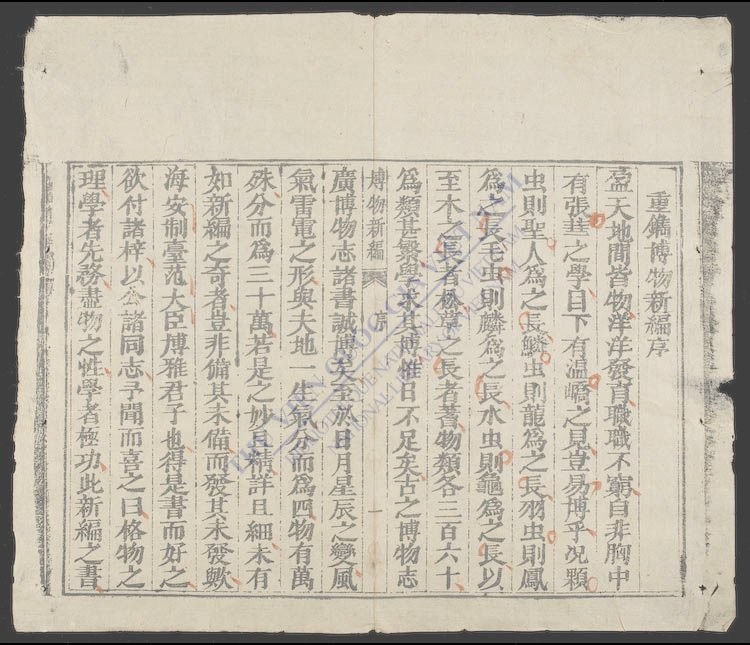 重鐫博物新編序
盈天地間皆物洋洋發育職職不窮自非胸中
有張華之學目下有溫嶠之見豈易博乎况顆
虫則聖人爲之長鱗虫則龍爲之長羽虫則鳳
爲之長毛虫則麟爲之長水虫則龜爲之長以
至木之長者松草之長者蓍物類各三百六十
爲類甚繁與求其博惟日不足矣古之博物志
博物新編 序 一
廣博物志諸書誠博矣至於日月星辰之變風
氣雷電之形與夫地一生氣分而爲四物有萬
殊分而爲三十萬若是之妙且精詳且細未有
如新編之奇者豈非備其未備而發其未發歟
海安制臺范大臣博雅君子也得是書而好之
欲付諸梓以公諸同志予聞而喜之曰格物之
理學者先務盡物之性學者極功此新編之書
THƯ VIỆN QUỐC GIA VIỆT NAM
NATIONAL LIBRARY OF VIETNAM